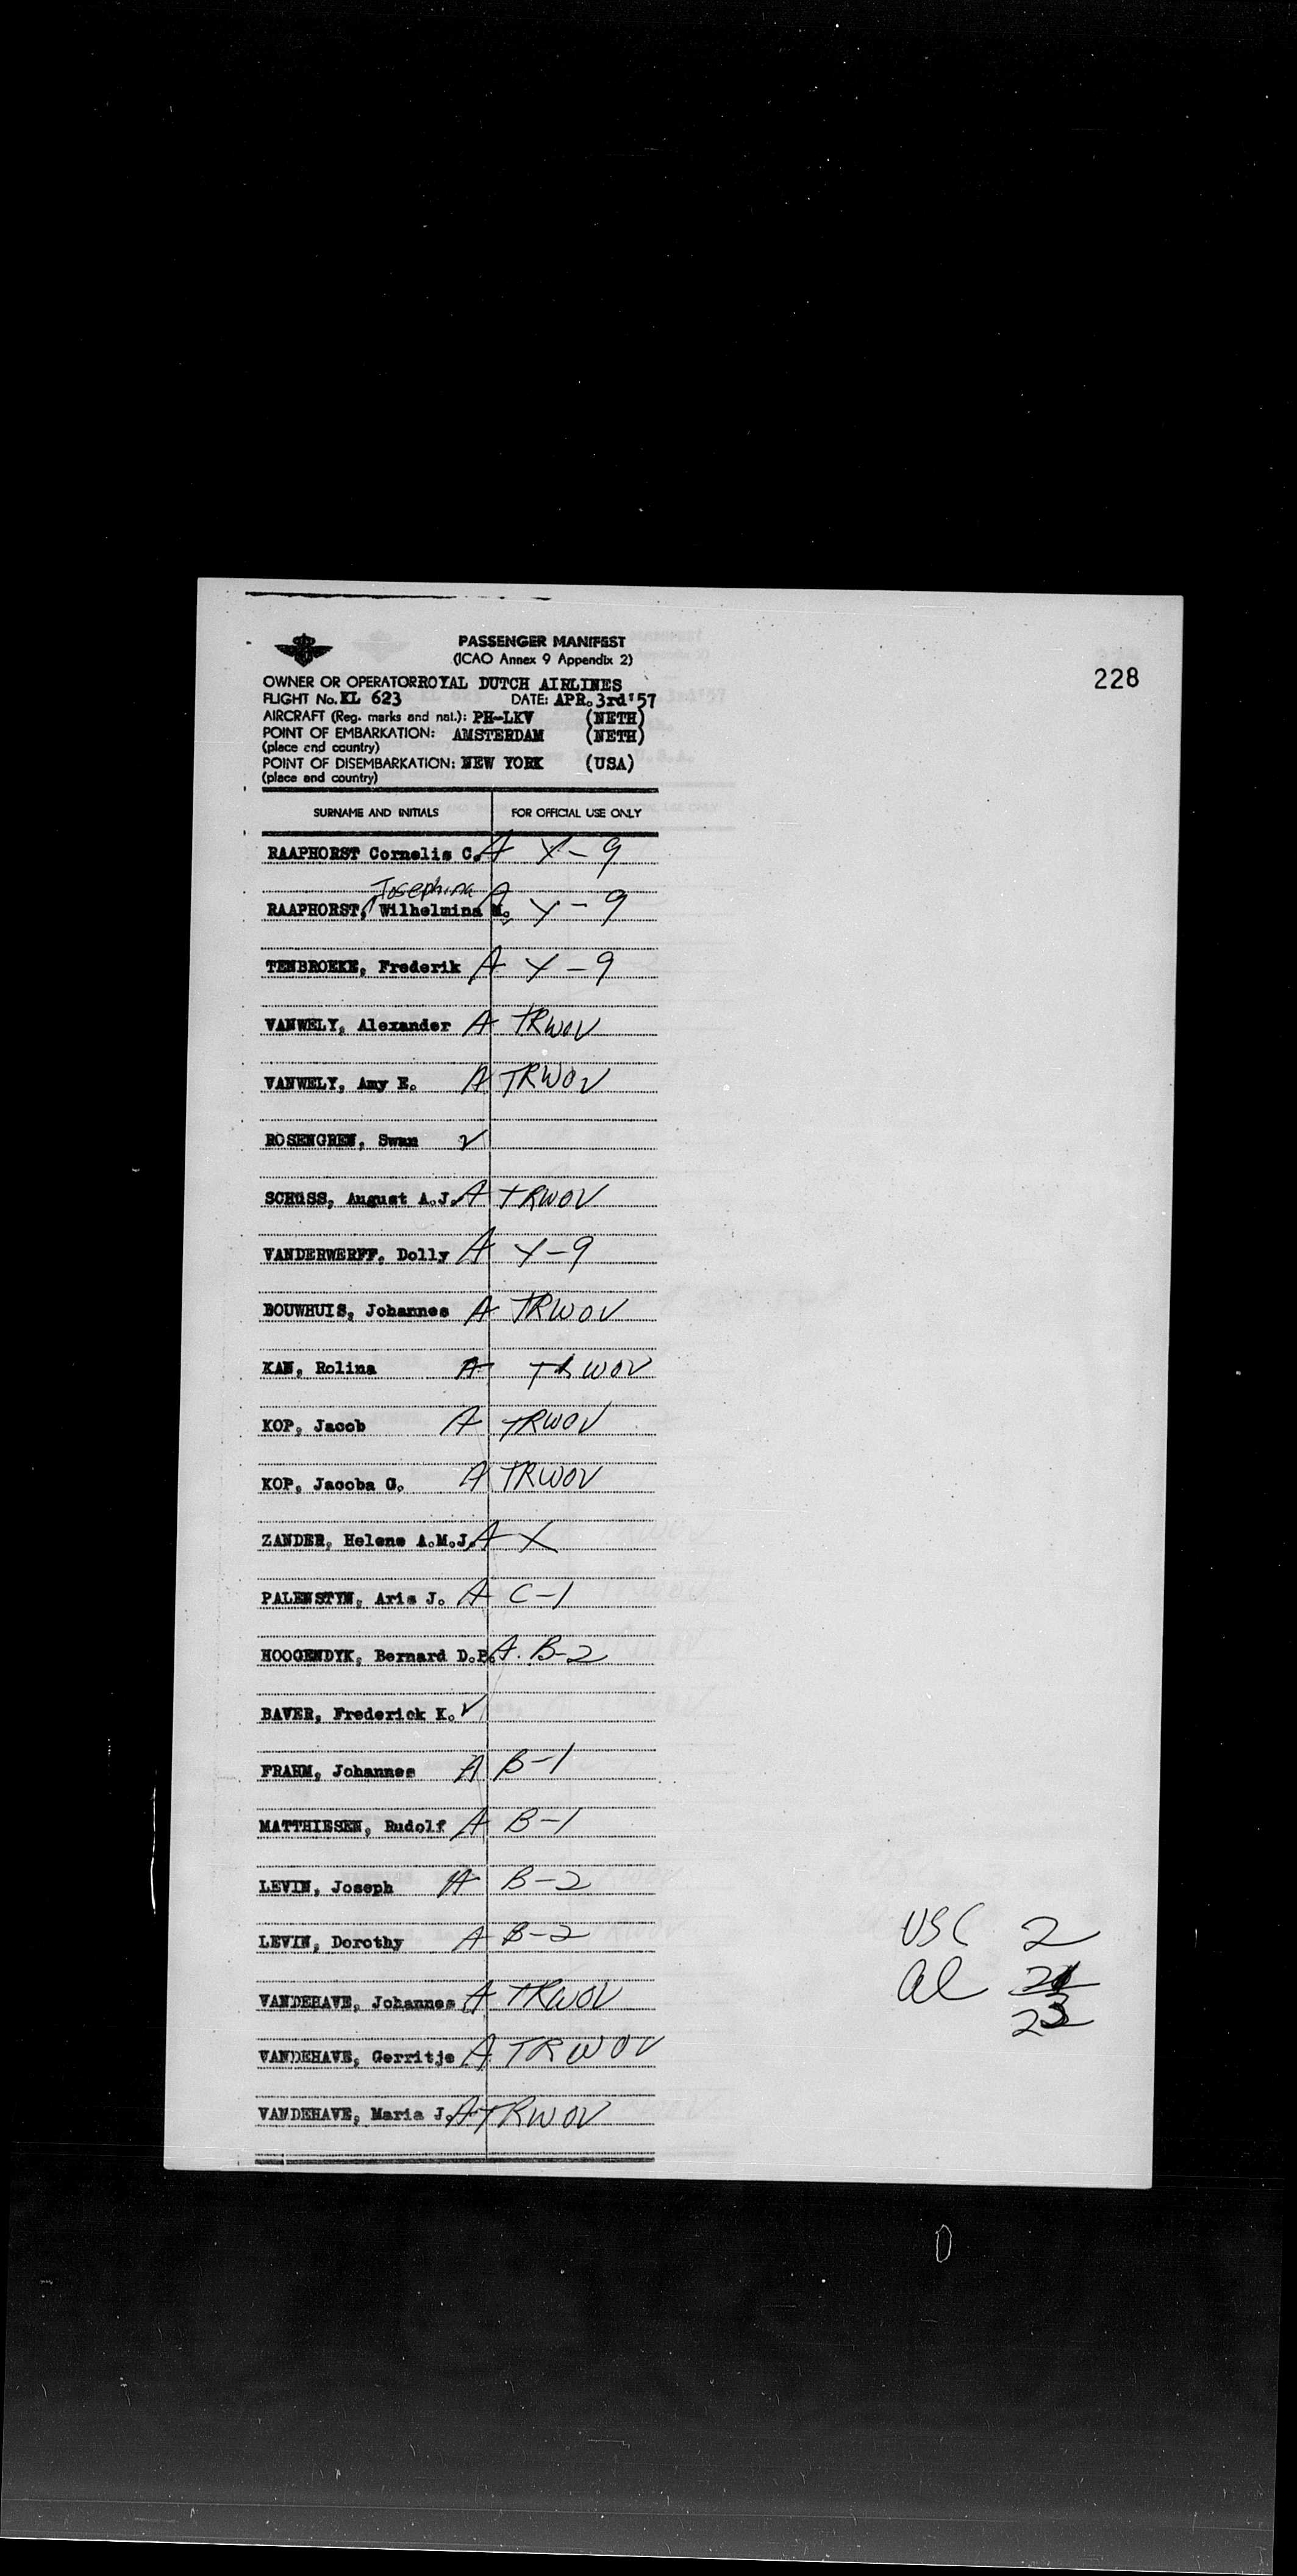 PASSENGER MANIFEST
(ICAO Annex 9 Appendix 2)
228
OWNER OR OPERATOR ROYAL DUTCH AIRLINES
FLIGHT No. KL 623 DATE: APR. 3rd'57
AIRCRAFT (Reg. marks and nat.): PH-LKV (NETH)
POINT OF EMBARKATION: AMSTERDAM (NETH)
(place and country)
POINT OF DISEMBARKATION: NEW YORK (USA)
(place and country)
SURNAME AND INITIALS FOR OFFICIAL USE ONLY
RAAPHORST Cornelis C. A Y-9
Josephina
RAAPHORST, Wilhelmina M. A Y-9
TENBROEKE, Frederik A Y-9
VANWELY, Alexander A TRWOV
VANWELY, Amy E. A TRWOV
ROSENGREN, Swan ✓
SCHüSS, August A.J. A TRWOV
VANDERWERFF, Dolly A Y-9
BOUWHUIS, Johannes A TRWOV
KAN, Rolina A TRWOV
KOP, Jacob A TRWOV
KOP, Jacoba G. A TRWOV
ZANDER, Helene A.M.J. A X
PALENSTYN, Arie J. A C-1
HOOGENDYK, Bernard D.P. A. B-2
BAVER, Frederick K. ✓
FRAHM, Johannes A B-1
MATTHIESEN, Rudolf A B-1
LEVIN, Joseph A B-2
LEVIN, Dorothy A B-2
VANDEHAVE, Johannes A TRWOV
VANDEHAVE, Gerritje A TRWOV
VANDEHAVE, Maria J. A TRWOV
USC 2
al 21
23